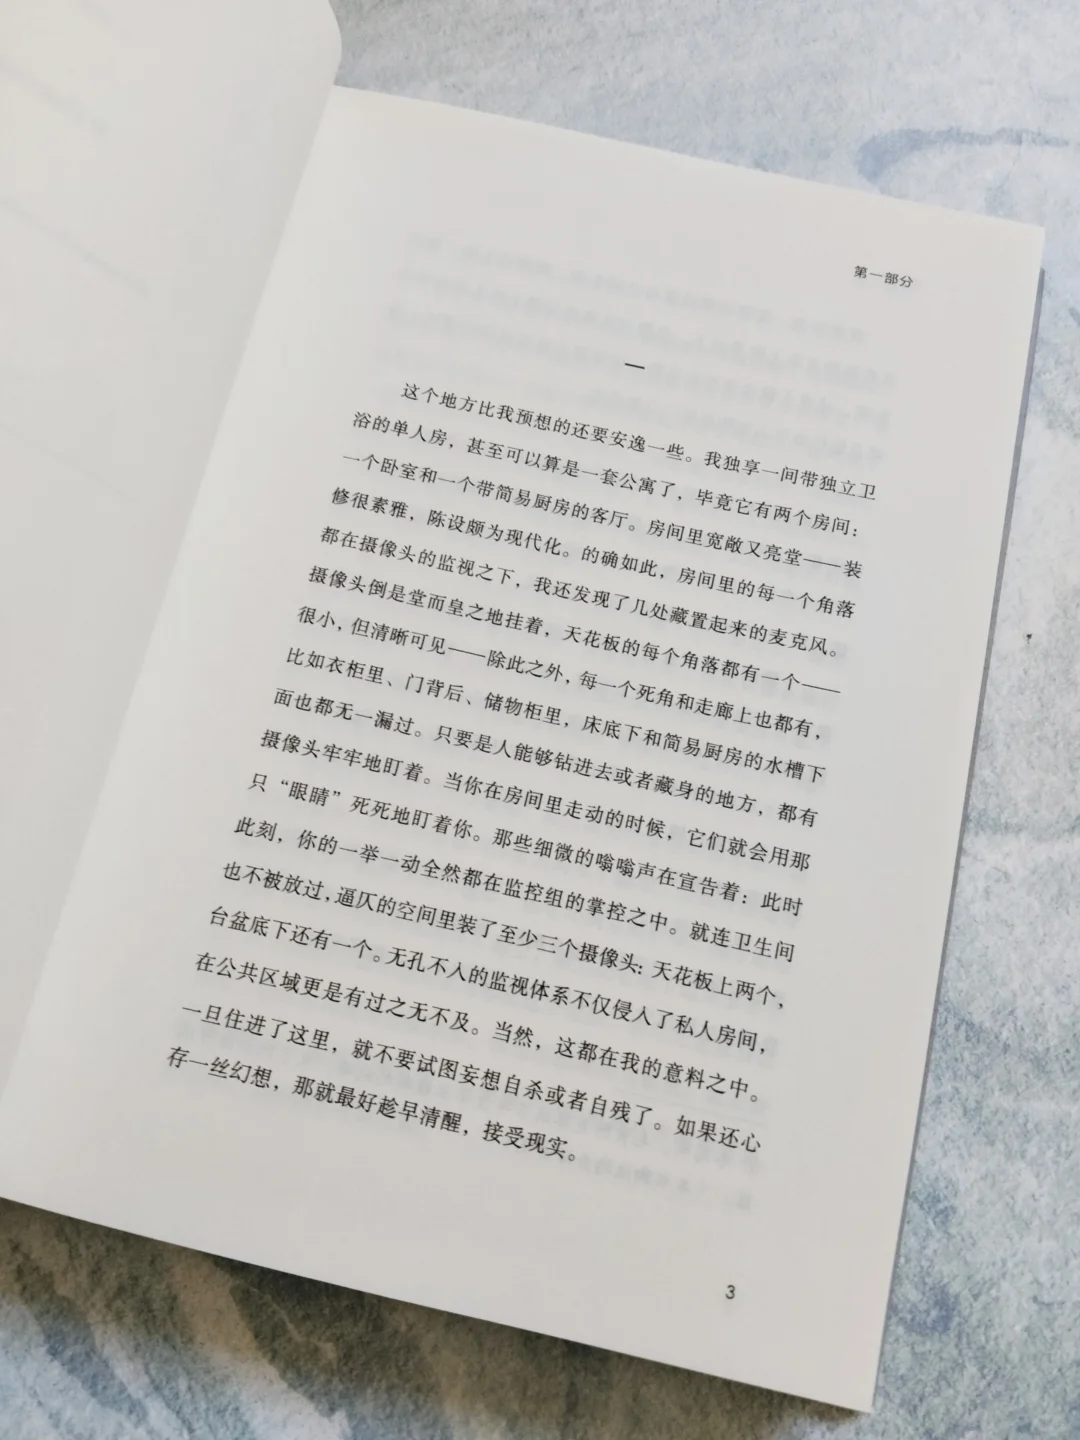 第一部分
一
这个地方比我预想的还要安逸一些。我独享一间带独立卫
浴的单人房，甚至可以算是一套公寓了，毕竟它有两个房间：
一个卧室和一个带简易厨房的客厅。房间里宽敞又亮堂——装
修很素雅，陈设颇为现代化。的确如此，房间里的每一个角落
都在摄像头的监视之下，我还发现了几处藏置起来的麦克风。
摄像头倒是堂而皇之地挂着，天花板的每个角落都有一个——
很小，但清晰可见——除此之外，每一个死角和走廊上也都有，
比如衣柜里、门背后、储物柜里，床底下和简易厨房的水槽下
面也都无一漏过。只要是人能够钻进去或者藏身的地方，都有
摄像头牢牢地盯着。当你在房间里走动的时候，它们就会用那
只“眼睛”死死地盯着你。那些细微的嗡嗡声在宣告着：此时
此刻，你的一举一动全然都在监控组的掌控之中。就连卫生间
也不被放过，逼仄的空间里装了至少三个摄像头：天花板上两个，
台盆底下还有一个。无孔不入的监视体系不仅侵入了私人房间，
在公共区域更是有过之无不及。当然，这都在我的意料之中。
一旦住进了这里，就不要试图妄想自杀或者自残了。如果还心
存一丝幻想，那就最好趁早清醒，接受现实。
3